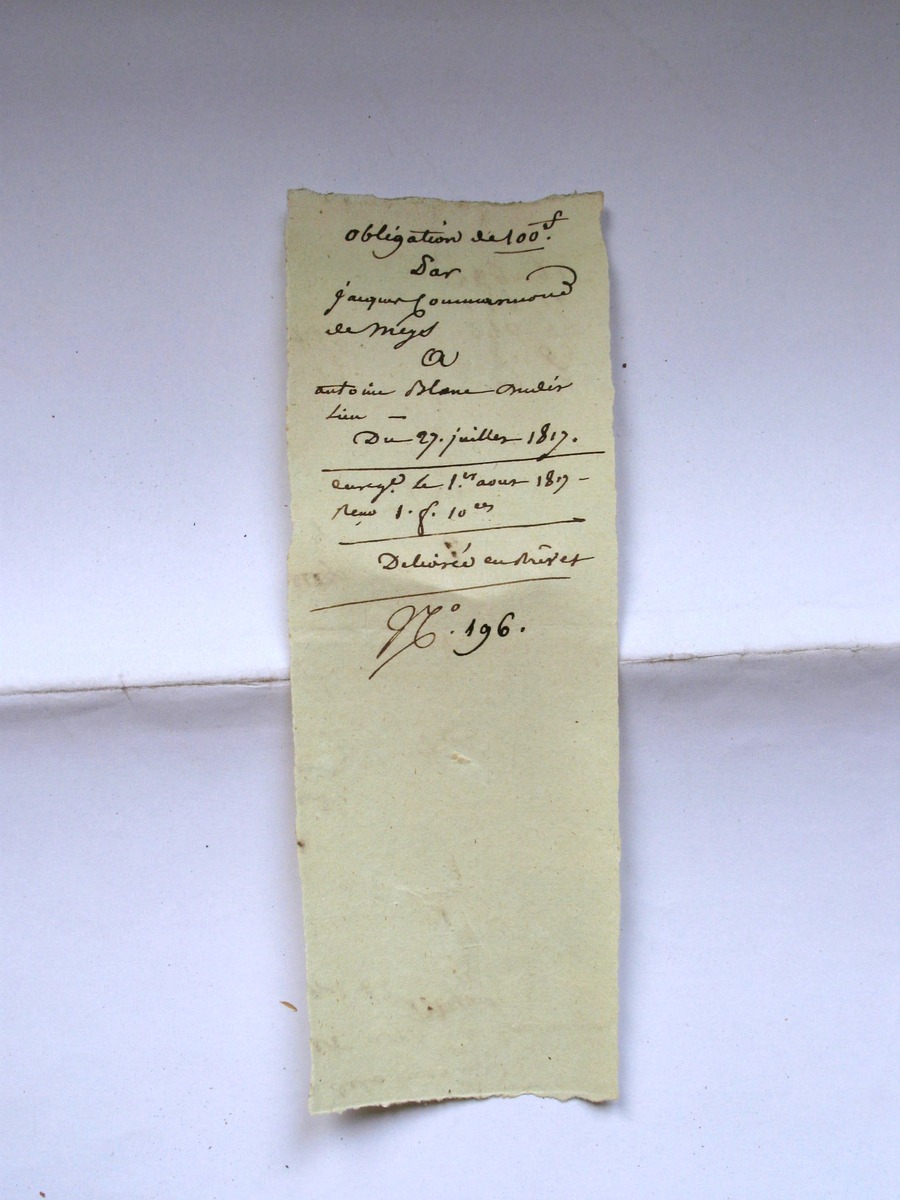 obligation de 100 f.
Par
jacques Commarmond
de Meys
a
antoine Blanc dudit
lieu —
Du 27. juillet 1817.
enreg.é le 1.er aout 1817 -
Reçu 1. f. 10 ces
Delivrée en Brevet
N.o 196.